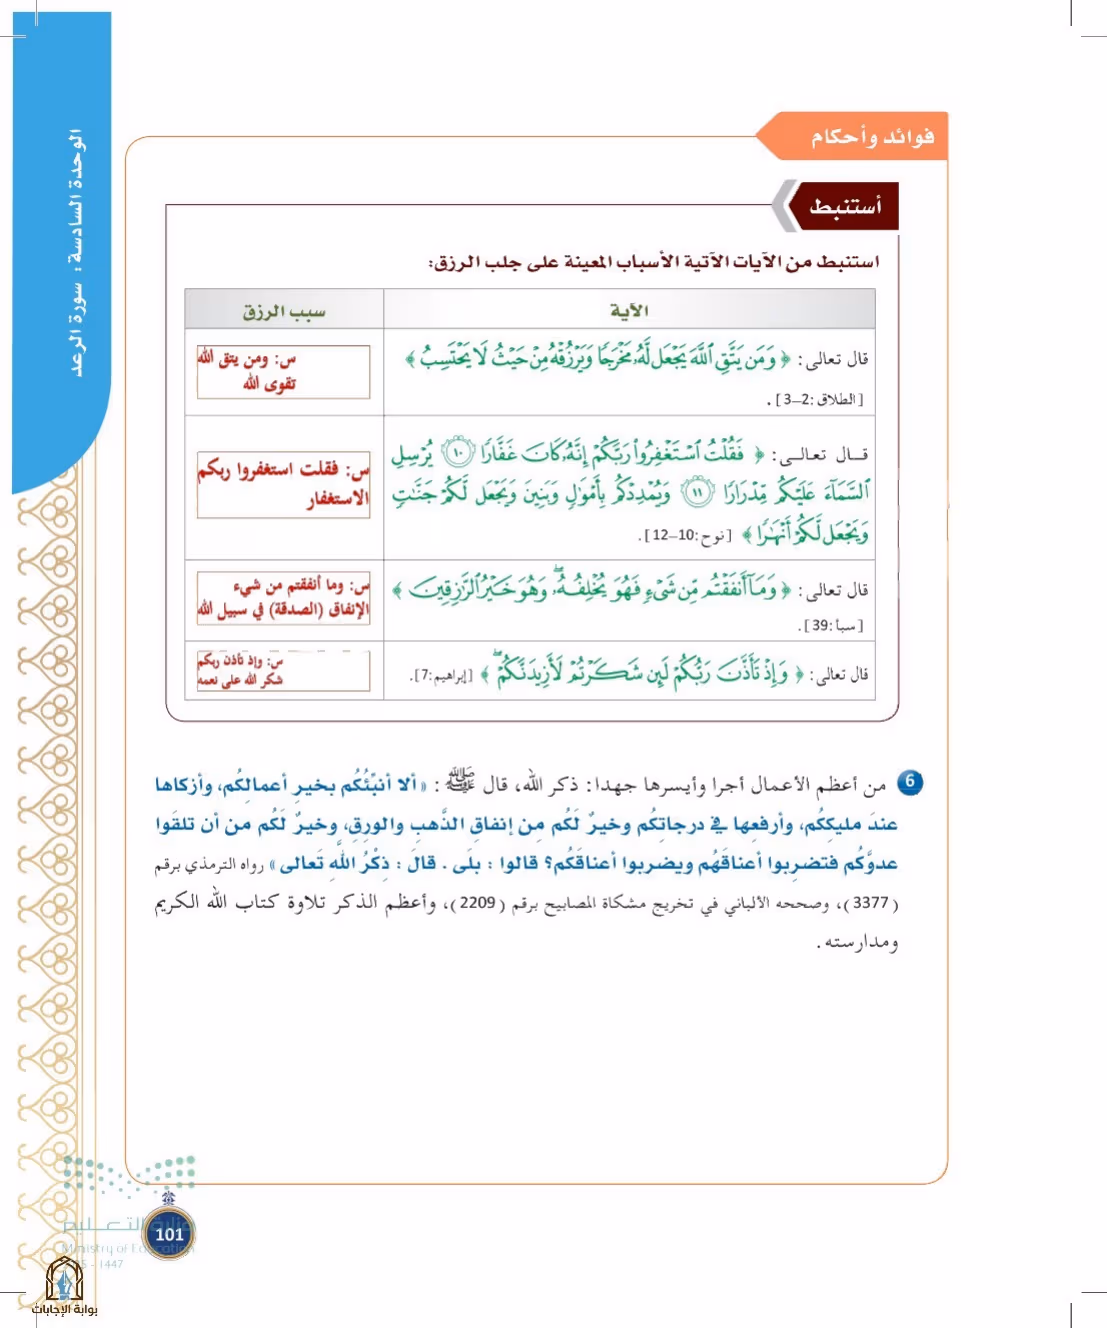 فوائد وأحكام
أستنبط
استنبط من الآيات الآتية الأسباب المعينة على جلب الرزق:
الآية
سبب الرزق
قال تعالى: ﴿ وَمَن يَتَّقِ ٱللَّهَ يَجْعَل لَّهُۥ مَخْرَجًا وَيَرْزُقْهُ مِنْ حَيْثُ لَا يَحْتَسِبُ ﴾
[الطلاق:2–3] .
س: ومن يتق الله
تقوى الله
قـــال تعالــى: ﴿ فَقُلْتُ ٱسْتَغْفِرُوا۟ رَبَّكُمْ إِنَّهُۥ كَانَ غَفَّارًا ١٠ يُرْسِلِ
ٱلسَّمَآءَ عَلَيْكُم مِّدْرَارًا ١١ وَيُمْدِدْكُم بِأَمْوَٰلٍ وَبَنِينَ وَيَجْعَل لَّكُمْ جَنَّٰتٍ
وَيَجْعَل لَّكُمْ أَنْهَٰرًا ﴾ [نوح:10–12].
س: فقلت استغفروا ربكم
الاستغفار
قال تعالى: ﴿ وَمَآ أَنفَقْتُم مِّن شَىْءٍ فَهُوَ يُخْلِفُهُۥ ۖ وَهُوَ خَيْرُ ٱلرَّٰزِقِينَ ﴾
[سبأ:39].
س: وما أنفقتم من شيء
الإنفاق (الصدقة) في سبيل الله
قال تعالى: ﴿ وَإِذْ تَأَذَّنَ رَبُّكُمْ لَئِن شَكَرْتُمْ لَأَزِيدَنَّكُمْ ۖ ﴾ [إبراهيم:7].
س: وإذ تأذن ربكم
شكر الله على نعمه
6 من أعظم الأعمال أجرا وأيسرها جهدا: ذكر الله، قال ﷺ : «ألا أنبِّئُكُم بخيرِ أعمالِكُم، وأزكاها
عندَ مليكِكُم، وأرفعِها في درجاتِكُم وخيرٌ لَكُم مِن إنفاقِ الذَّهبِ والورِقِ، وخيرٌ لَكُم من أن تلقَوا
عدوَّكُم فتضرِبوا أعناقَهُم ويضربوا أعناقَكُم؟ قالوا : بلَى . قالَ : ذِكْرُ اللَّهِ تَعالى» رواه الترمذي برقم
(3377)، وصححه الألباني في تخريج مشكاة المصابيح برقم (2209)، وأعظم الذكر تلاوة كتاب الله الكريم
ومدارسته.
الوحدة السادسة : سورة الرعد
وزارة التعـــليم
101
Ministry of Education
- 1447
بوابة الإجابات